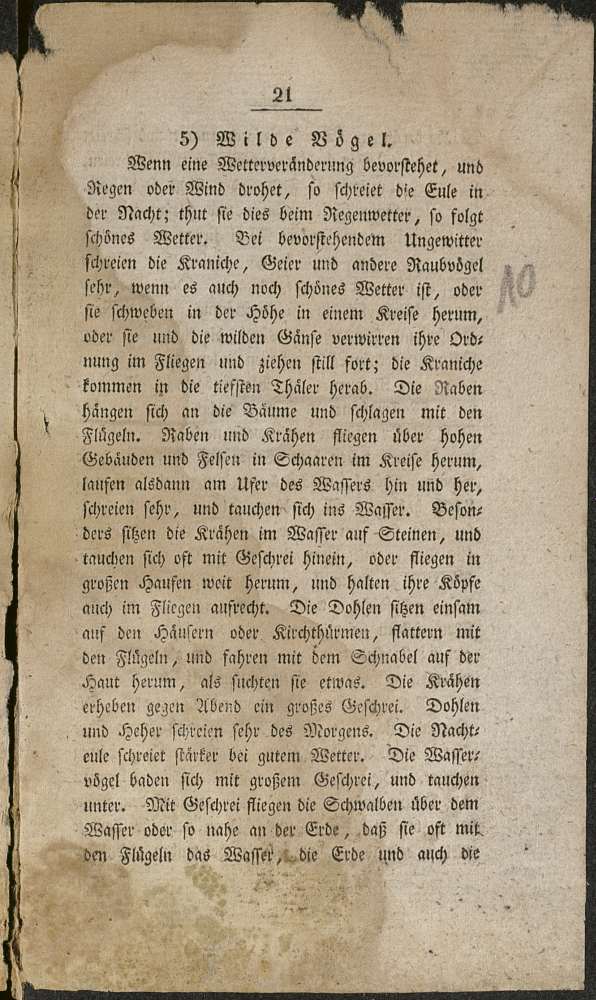 21
5) Wilde Vögel.
Wenn eine Wetterveränderung bevorstehet, und
Regen oder Wind drohet, so schreiet die Eule in
der Nacht; thut sie dies beim Regenwetter, so folgt
schönes Wetter. Bei bevorstehendem Ungewitter
schreien die Kraniche, Geier und andere Raubvögel
sehr, wenn es auch noch schönes Wetter ist, oder
sie schweben in der Höhe in einem Kreise herum,
oder sie und die wilden Gänse verwirren ihre Ord-
nung im Fliegen und ziehen still fort; die Kraniche
kommen in die tiefsten Thäler herab. Die Raben
hängen sich an die Bäume und schlagen mit den
Flügeln. Raben und Krähen fliegen über hohen
Gebäuden und Felsen in Schaaren im Kreise herum,
laufen alsdann am Ufer des Wassers hin und her,
schreien sehr, und tauchen sich ins Wasser. Beson-
ders sitzen die Krähen im Wasser auf Steinen, und
tauchen sich oft mit Geschrei hinein, oder fliegen in
großen Haufen weit herum, und halten ihre Köpfe
auch im Fliegen aufrecht. Die Dohlen sitzen einsam
auf den Häusern oder Kirchthürmen, flattern mit
den Flügeln, und fahren mit dem Schnabel auf der
Haut herum, als suchten sie etwas. Die Krähen
erheben gegen Abend ein großes Geschrei. Dohlen
und Heher schreien sehr des Morgens. Die Nacht-
eule schreiet stärker bei gutem Wetter. Die Wasser-
vögel baden sich mit großem Geschrei, und tauchen
unter. Mit Geschrei fliegen die Schwalben über dem
Wasser oder so nahe an der Erde, daß sie oft mit
den Flügeln das Wasser, die Erde und auch die
10